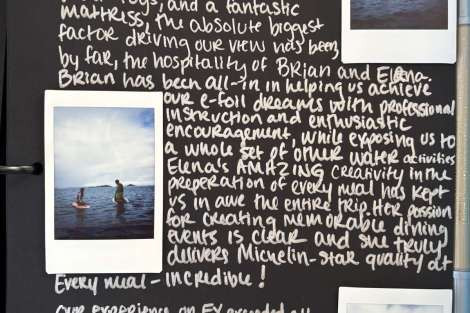 toys, and a fantastic
mattress, the absolute biggest
factor driving our view has been,
by far, the hospitality of Brian and Elena.
Brian has been all-in in helping us achieve
our e-foil dreams with professional
instruction and enthusiastic
encouragement, while exposing us to
a whole set of other water activities
Elena's AMAZING creativity in the
preperation of every meal has kept
us in awe the entire trip. Her passion
for creating memorable dining
events is clear and she truly
delivers Michelin-star quality at
Every meal - incredible!
our experience on